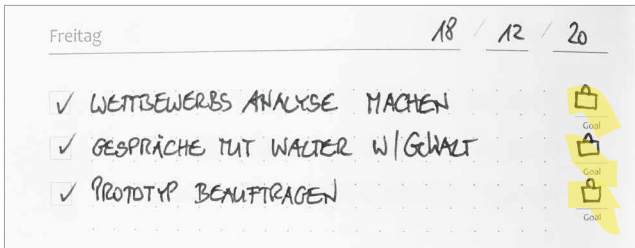 Freitag 18 / 12 / 20
✓ WETTBEWERBS ANALYSE MACHEN
Goal
✓ GESPRÄCHE MIT WALTER W/ GEHALT
Goal
✓ PROTOTYP BEAUFTRAGEN
Goal